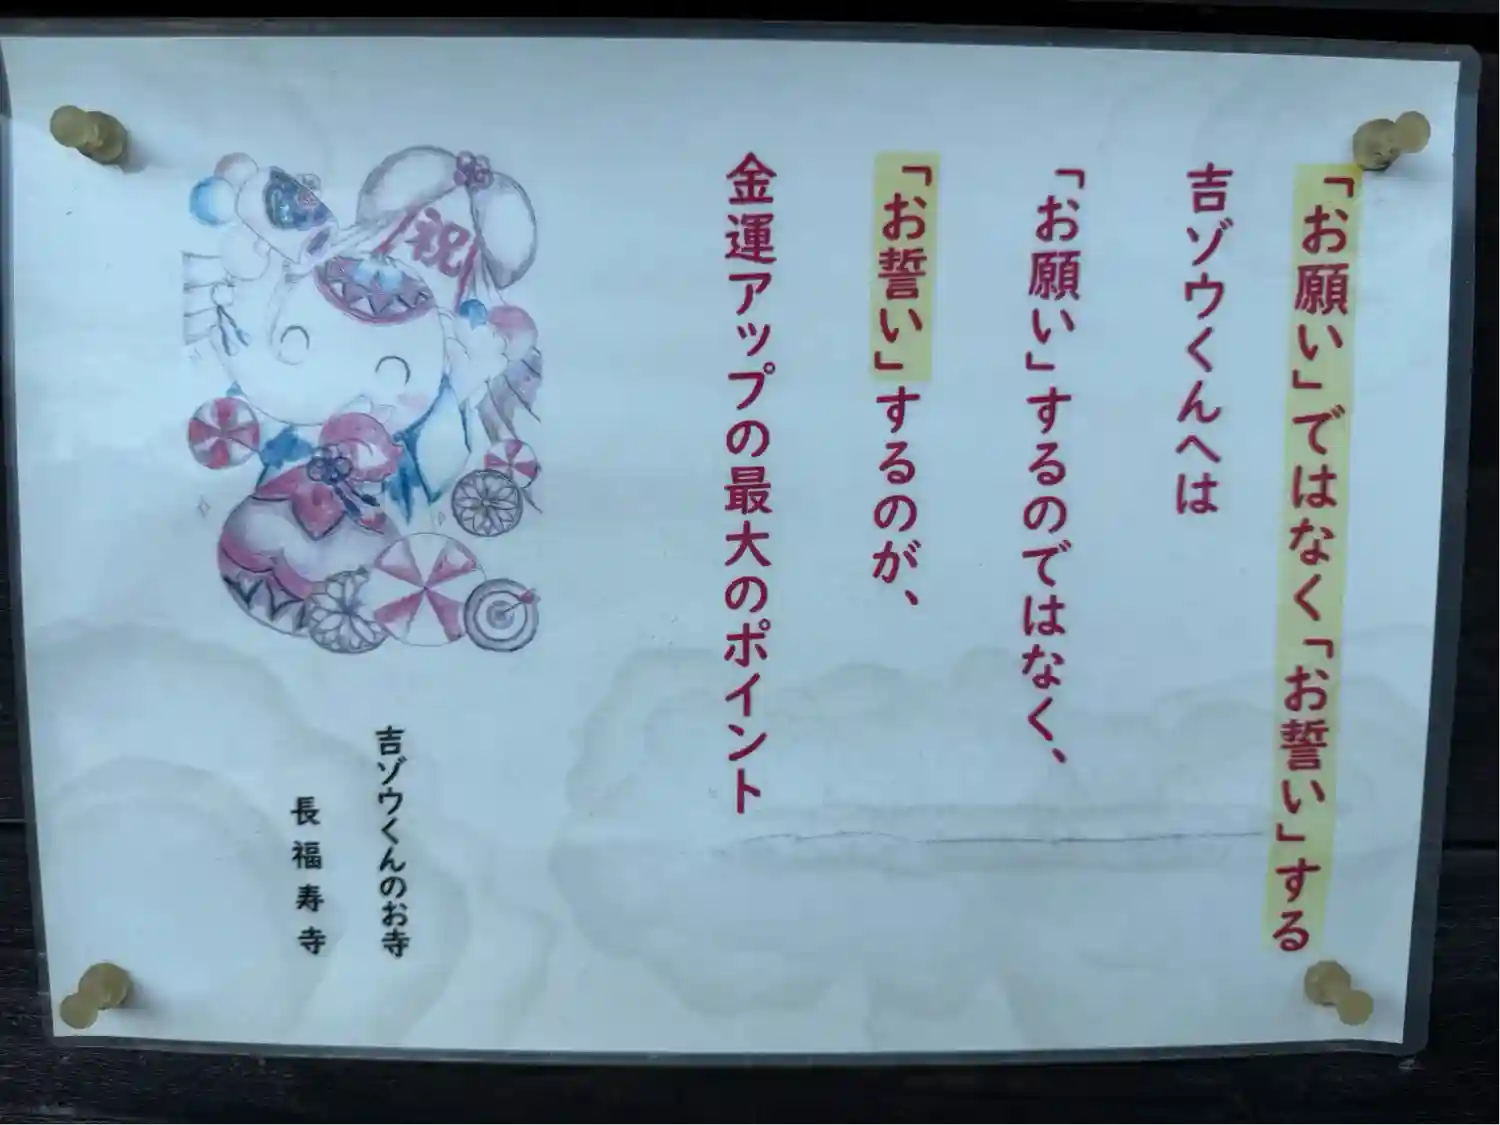 「お願い」ではなく「お誓い」する
吉ゾウくんへは
「お願い」するのではなく、
「お誓い」するのが、
金運アップの最大のポイント
祝
吉ゾウくんのお寺
長福寿寺